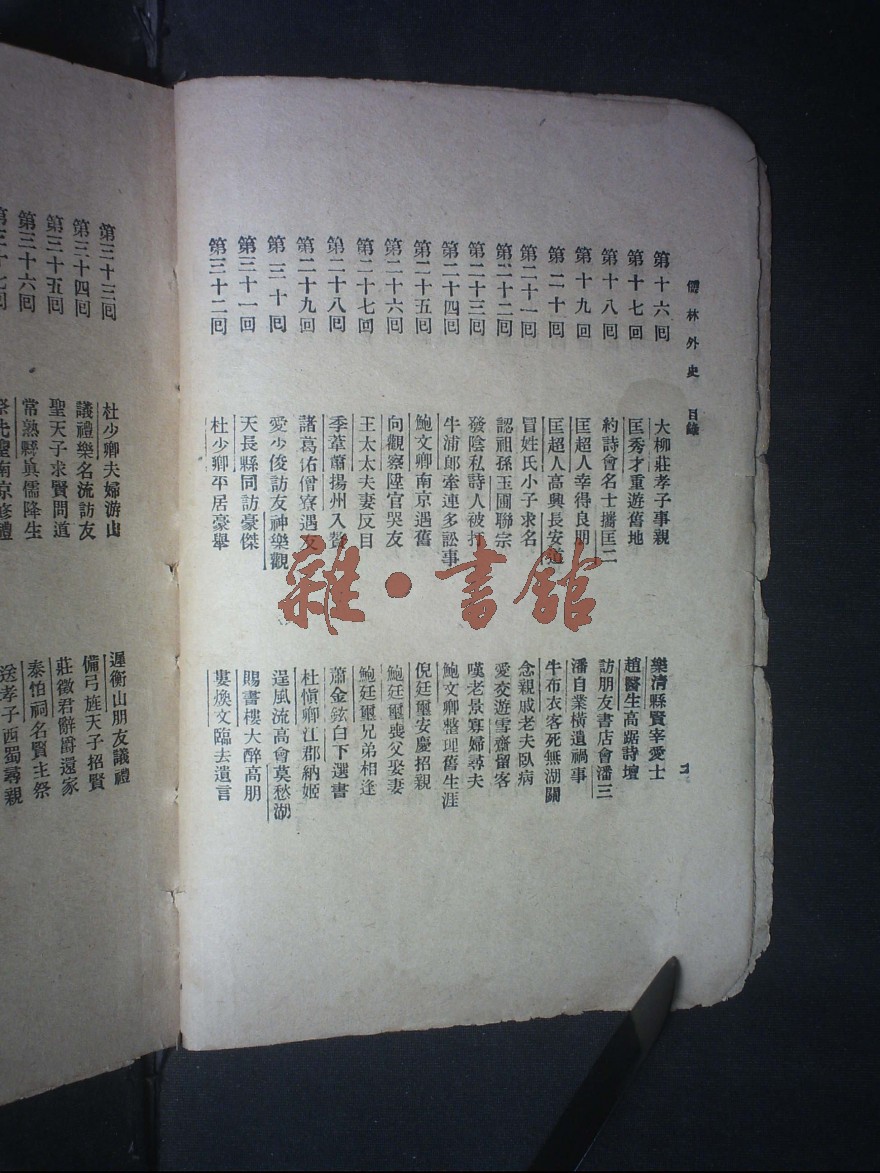 儒林外史 目錄
第十六回 大柳莊孝子事親 樂清縣賢宰愛士
第十七回 匡秀才重遊舊地 趙醫生高踞詩壇
第十八回 約詩會名士攜匡二 訪朋友書店會潘三
第十九回 匡超人幸得良朋 潘自業橫遭禍事
第二十回 匡超人高興長安道 牛布衣客死蕪湖關
第二十一回 冒姓氏小子求名 念親戚老夫臥病
第二十二回 認祖孫玉圃聯宗 愛交遊雪齋留客
第二十三回 發陰私詩人被打 嘆老景寡婦尋夫
第二十四回 牛浦郎牽連多訟事 鮑文卿整理舊生涯
第二十五回 鮑文卿南京遇舊 倪廷璽安慶招親
第二十六回 向觀察陞官哭友 鮑廷璽喪父娶妻
第二十七回 王太太夫妻反目 鮑廷璽兄弟相逢
第二十八回 季葦蕭揚州入贅 蕭金鉉白下選書
第二十九回 諸葛佑僧寮遇友 杜慎卿江郡納姬
第三十回 愛少俊訪友神樂觀 逞風流高會莫愁湖
第三十一回 天長縣同訪豪傑 賜書樓大醉高朋
第三十二回 杜少卿平居豪舉 婁煥文臨去遺言
第三十三回 杜少卿夫婦游山 遲衡山朋友議禮
第三十四回 議禮樂名流訪友 備弓旌天子招賢
第三十五回 聖天子求賢問道 莊徵君辭爵還家
第三十六回 常熟縣眞儒降生 泰伯祠名賢主祭
第三十七回 祭先聖南京修禮 送孝子西蜀尋親
雜·書館